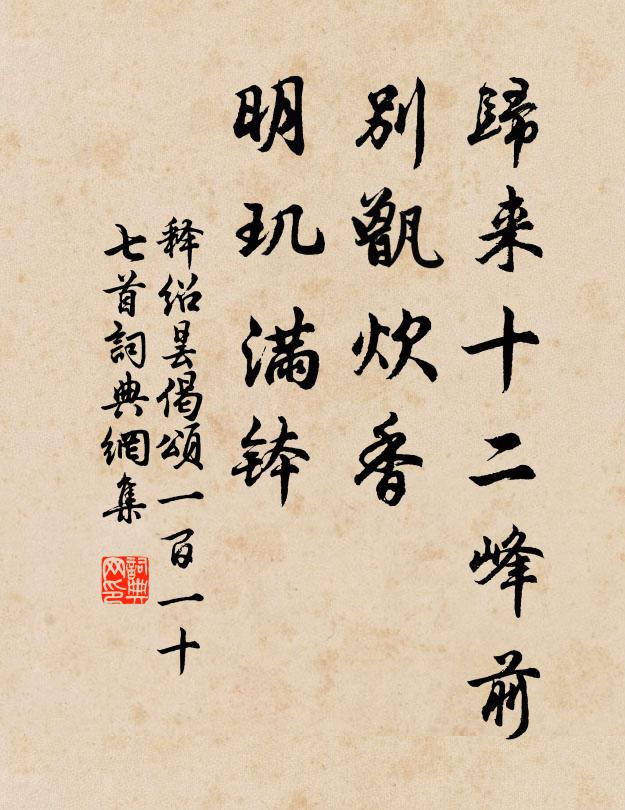 歸来十二峰前
别甑炊香
明玑满钵
释绍昙偈颂一百一十
七首詞典網集
詞典
网印